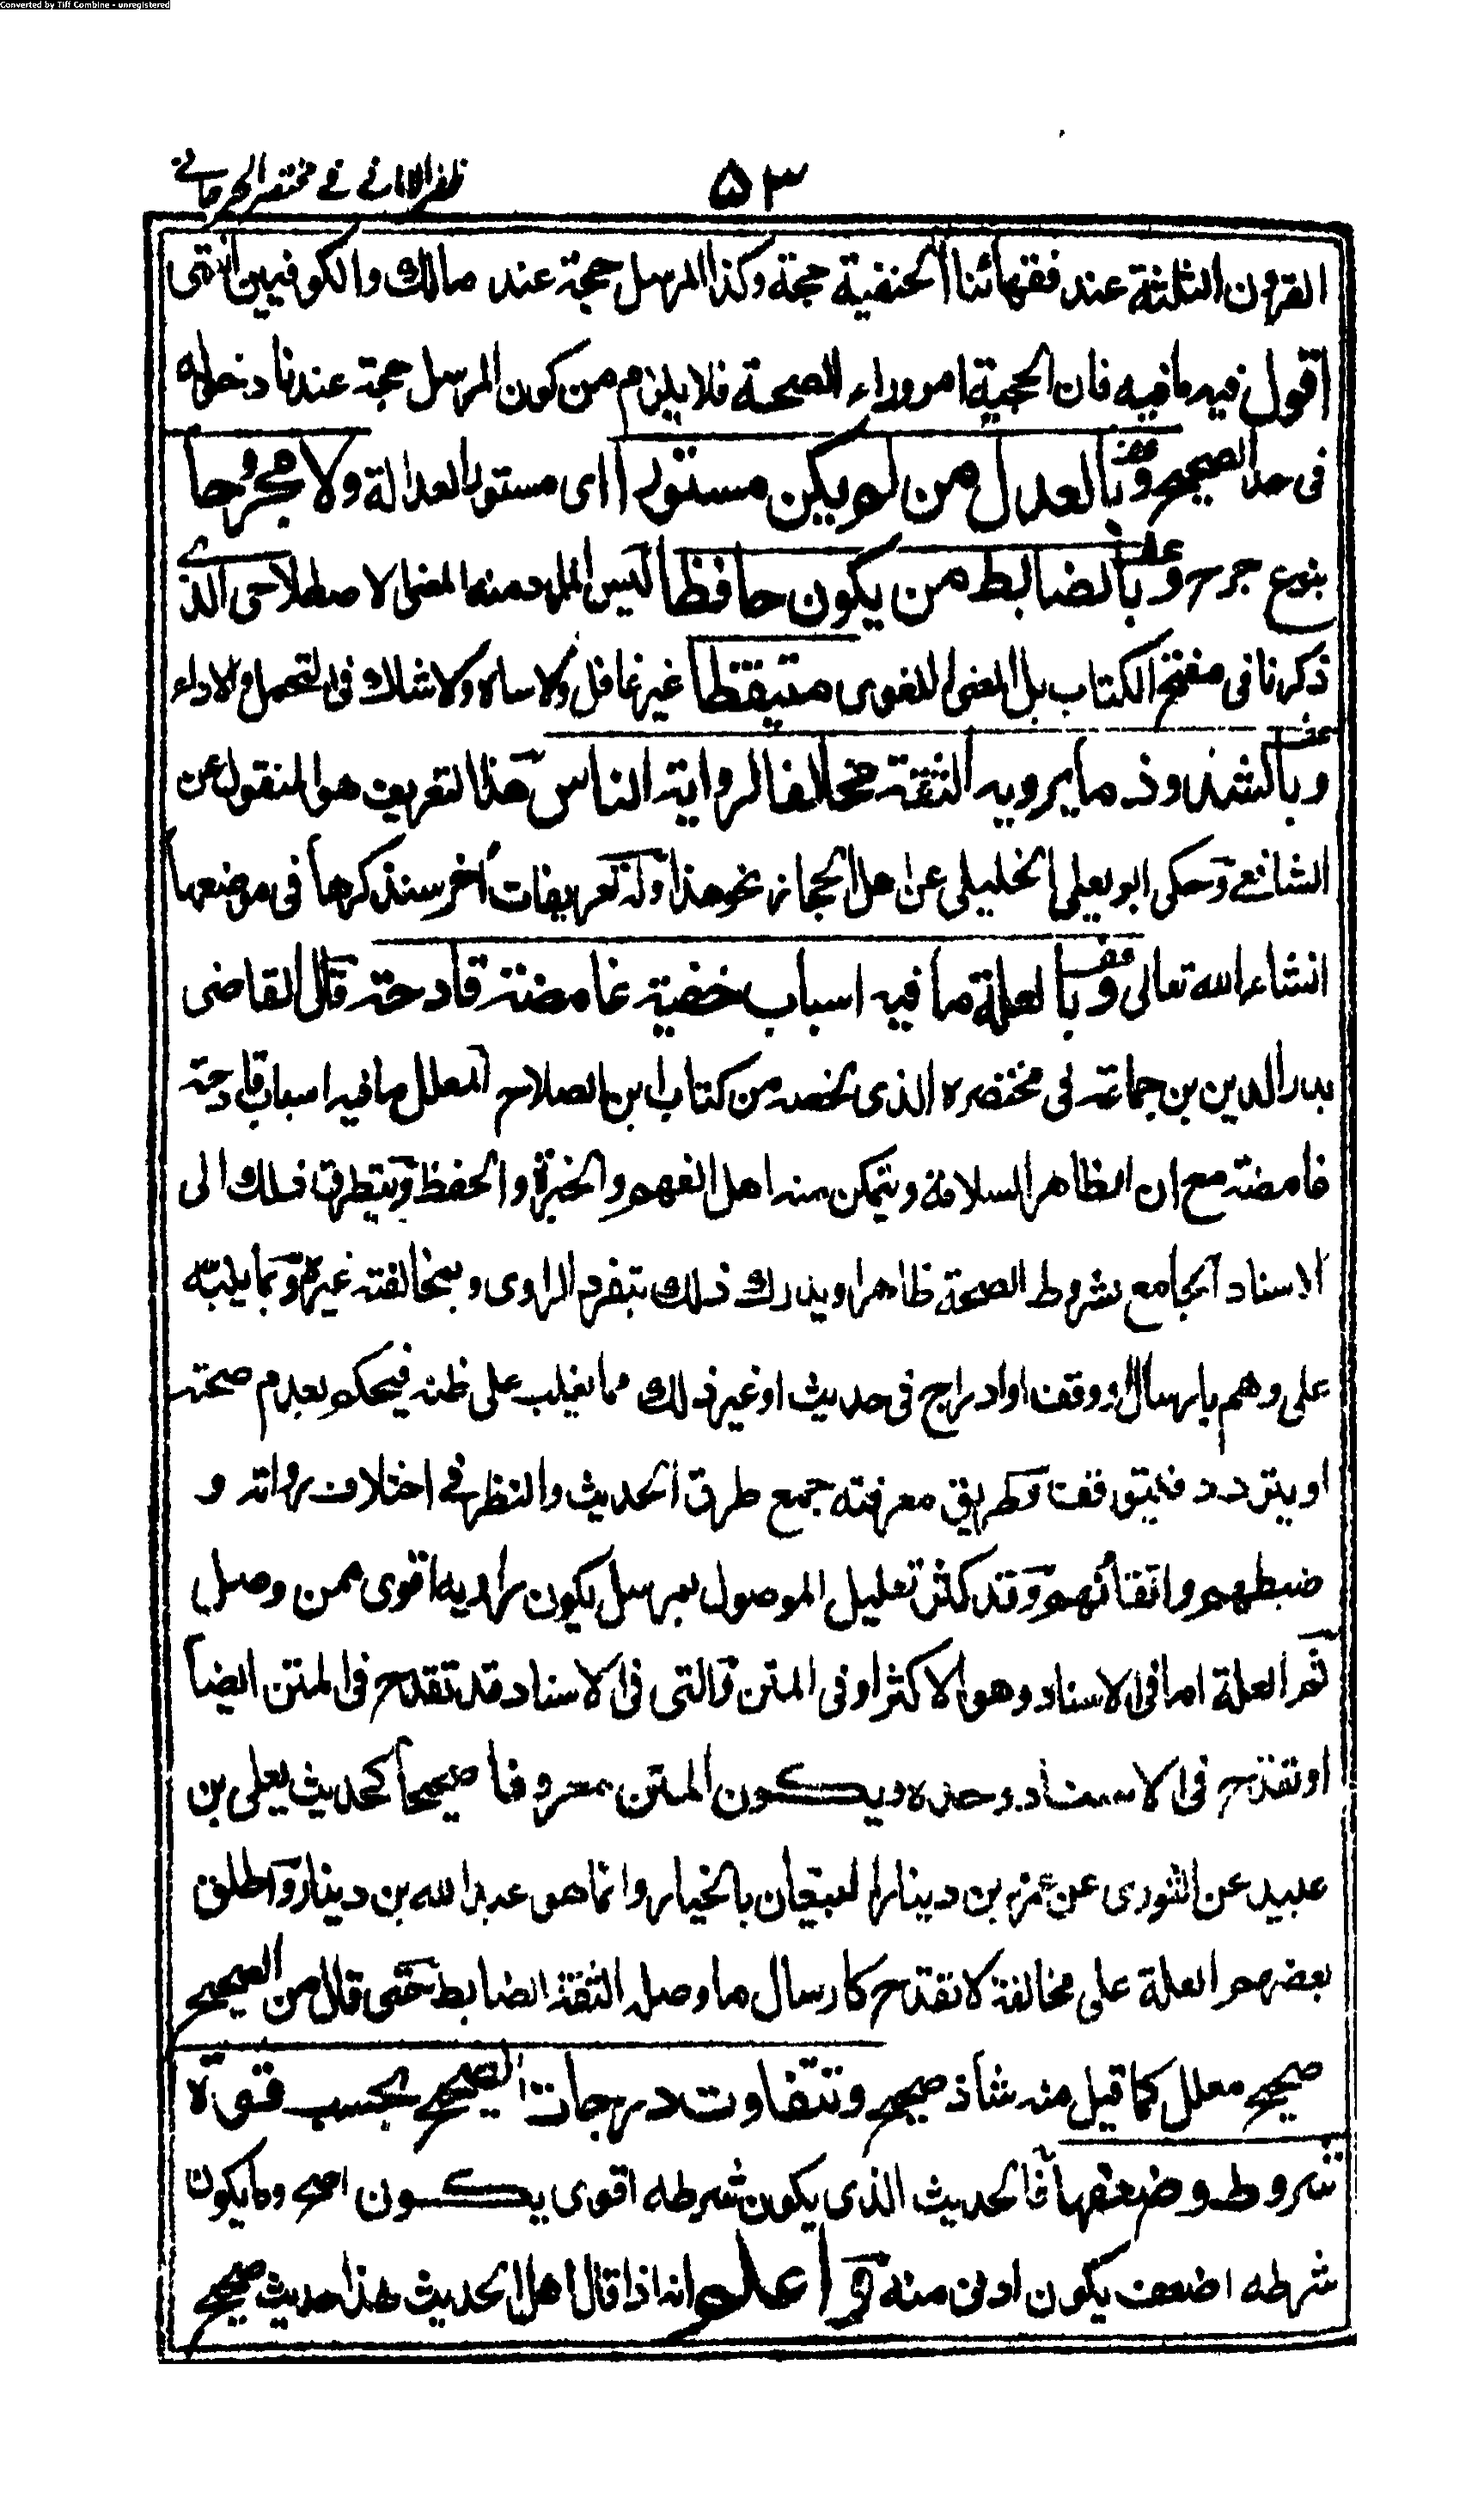 Converted by Tiff Combine - unregistered
ظفر الامانے فے مختصر الجرجانے
۵۳
القرون الثلثة عند فقهائنا الحنفية حجة وكذا المرسل حجة عند مالك والكوفيين انتهى
اقول فيه ما فيه فان الحجية امر وراء الصحة فلا يلزم من كون المرسل حجة عندنا دخوله
فى حد الصحيح ونعنى بالعدل من لم يكن مستورا اى مستور العدالة ولا مجروحا
بنوع جرح ونعنى بالضابط من يكون حافظا ليس المراد منه المعنى الاصطلاحى الذے
ذكرنا فى مفتتح الكتاب بل المعنى اللغوى متيقظا غير غافل ولا ساه ولا شاك فى التحمل والاداء
ونعنى بالشذوذ ما يرويه الثقة مخالفا لرواية الناس هذا التعريف هو المنقول عن
الشافعے وحكى ابو يعلى الخليلى عن اهل الحجاز نحو هذا وله تعريفات أخر سنذكرها فى موضعها
انشاء الله تعالى ونعنى بالعلة ما فيه اسباب خفية غامضة قادحة قال القاضى
بدر الدين بن جماعة فى مختصره الذى لخصه من كتاب ابن الصلاح المعلل ما فيه اسباب قادحة
غامضة مع ان الظاهر السلامة ويتمكن منه اهل الفهم والخبرة والحفظ ويتطرق ذلك الى
الاسناد الجامع بشروط الصحة ظاهرا ويدرك ذلك بتفرد الراوى وبمخالفته غيره وبما ينبه
على وهم بارسال او وقف او ادراج فى حديث او غير ذلك مما يغلب على ظنه فيحكم بعدم صحته
او يتردد فيتوقف وطريق معرفته جمع طرق الحديث والنظر فے اختلاف رواته و
ضبطهم واتقانهم وقد كثر تعليل الموصول بمرسل يكون راويه اقوى ممن وصل
ثم العلة اما فى الاسناد وهو الاكثر او فى المتن والتى فى الاسناد قد تقدح فى المتن ايضا
او تقدح فى الاسناد وحده ويكون المتن معروفا صحيحا كحديث يعلى بن
عبيد عن الثورى عن عمرو بن دينار البيعان بالخيار وانما هو عبد الله بن دينار واطلق
بعضهم العلة على مخالفة لا تقدح كارسال ما وصله الثقة الضابط حتى قال من الصحيح
صحيح معلل كما قيل منه شاذ صحيح وتتفاوت درجات الصحيح بحسب قوة
شروط وضعفها فالحديث الذى يكون شرطه اقوى يكون اصح وما يكون
شرطه اضعف يكون ادون منه واعلم انه اذا قال اهل الحديث هذا حديث صحيح